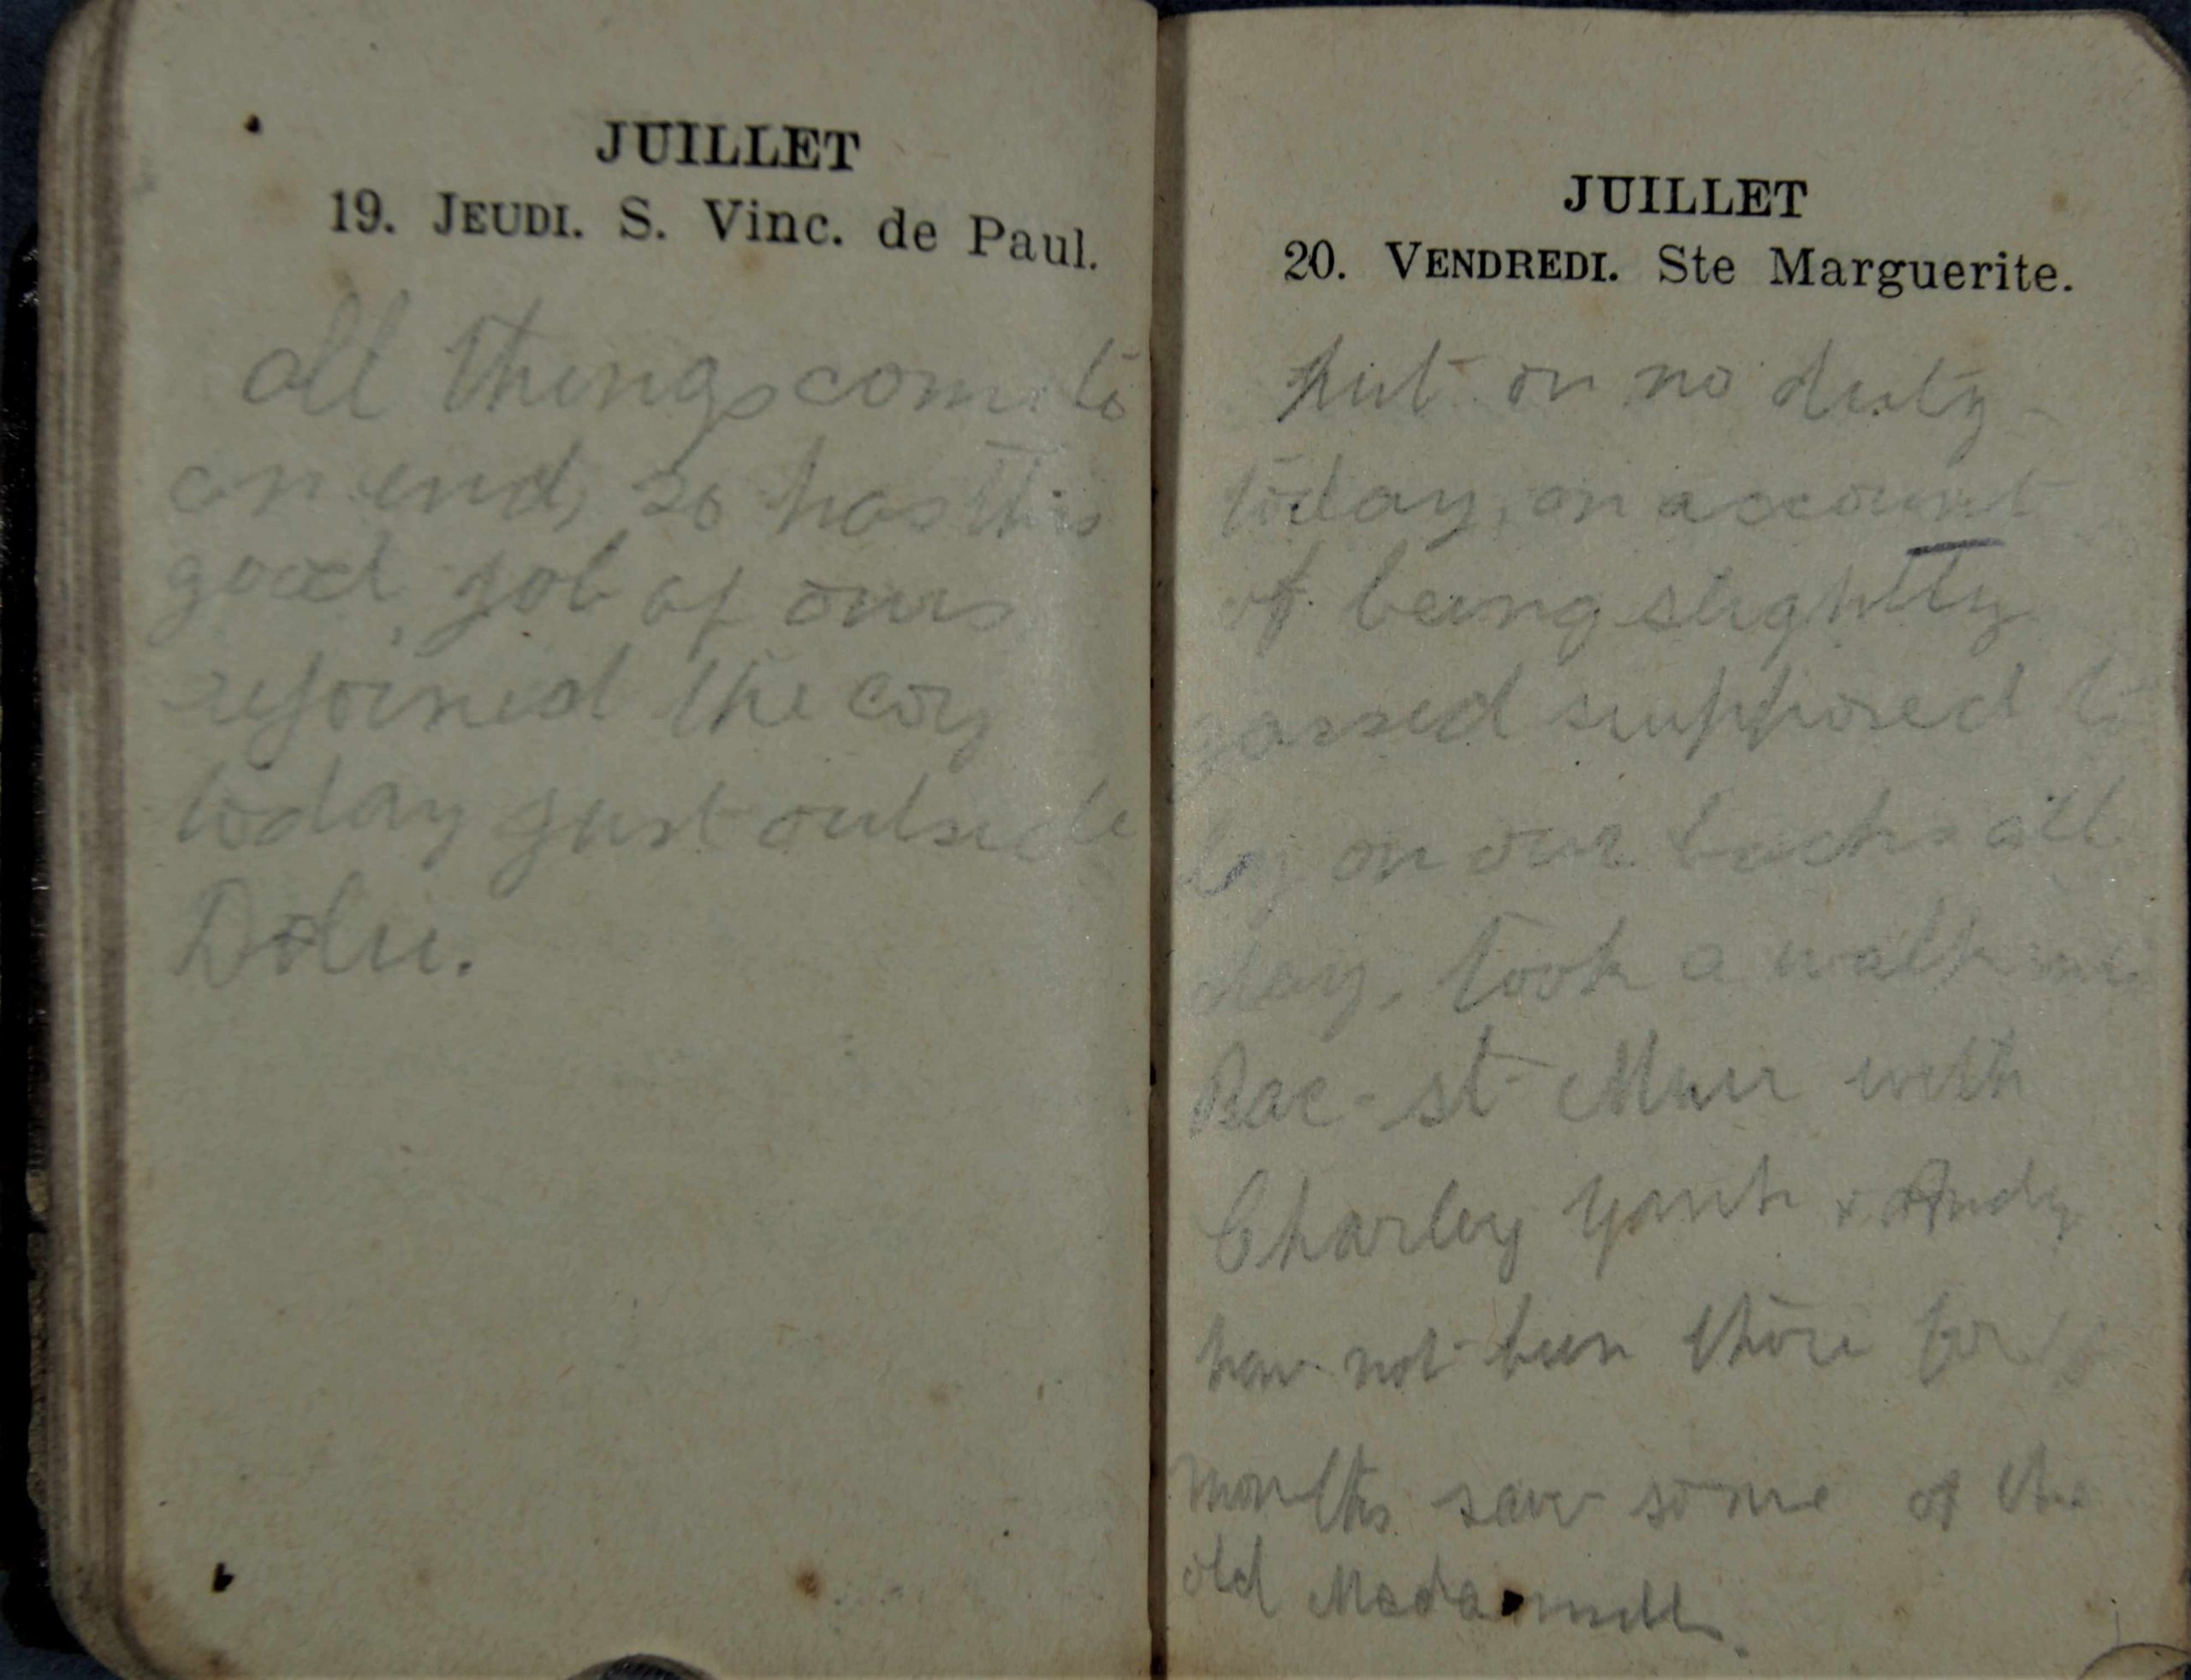 JUILLET
19. JEUDI. S. Vinc. de Paul.
all things come to
an end, so has this
good job of ours
rejoined the coy
today just outside
Dolu.
JUILLET
20. VENDREDI. Ste Marguerite.
put on no duty
today, on account
of being slightly
gassed supposed to
lay on our backs all
day, took a walk
Bac-st Muur with
Charley & Andy
have not been there for
months saw some of the
old